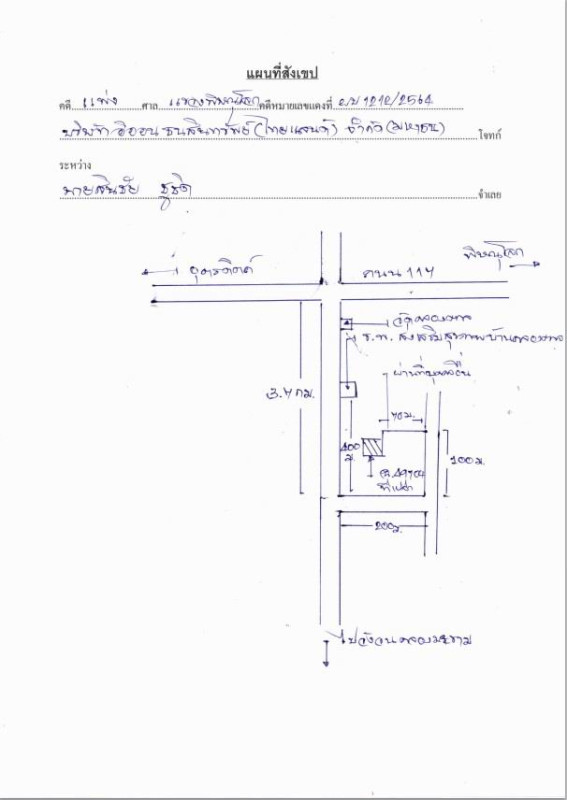 แผนที่สังเขป
คดี แพ่ง ศาล แขวงพิษณุโลก คดีหมายเลขแดงที่ ผบ 1212/2564
บริษัท อิออน ธนสินทรัพย์ (ไทยแลนด์) จำกัด (มหาชน) โจทก์
ระหว่าง
นายสินชัย ชูชิต จำเลย
พิษณุโลก
อุตรดิตถ์ ถนน 117
วัดคลองวาง
ร.พ. ส่งเสริมสุขภาพบ้านคลอง
ผ่านที่บุคคลอื่น
3.7 กม.
70 ม.
400 ม.
100 ม.
ที่เปล่า
200 ม.
ไปวังวน คลองมะขาม